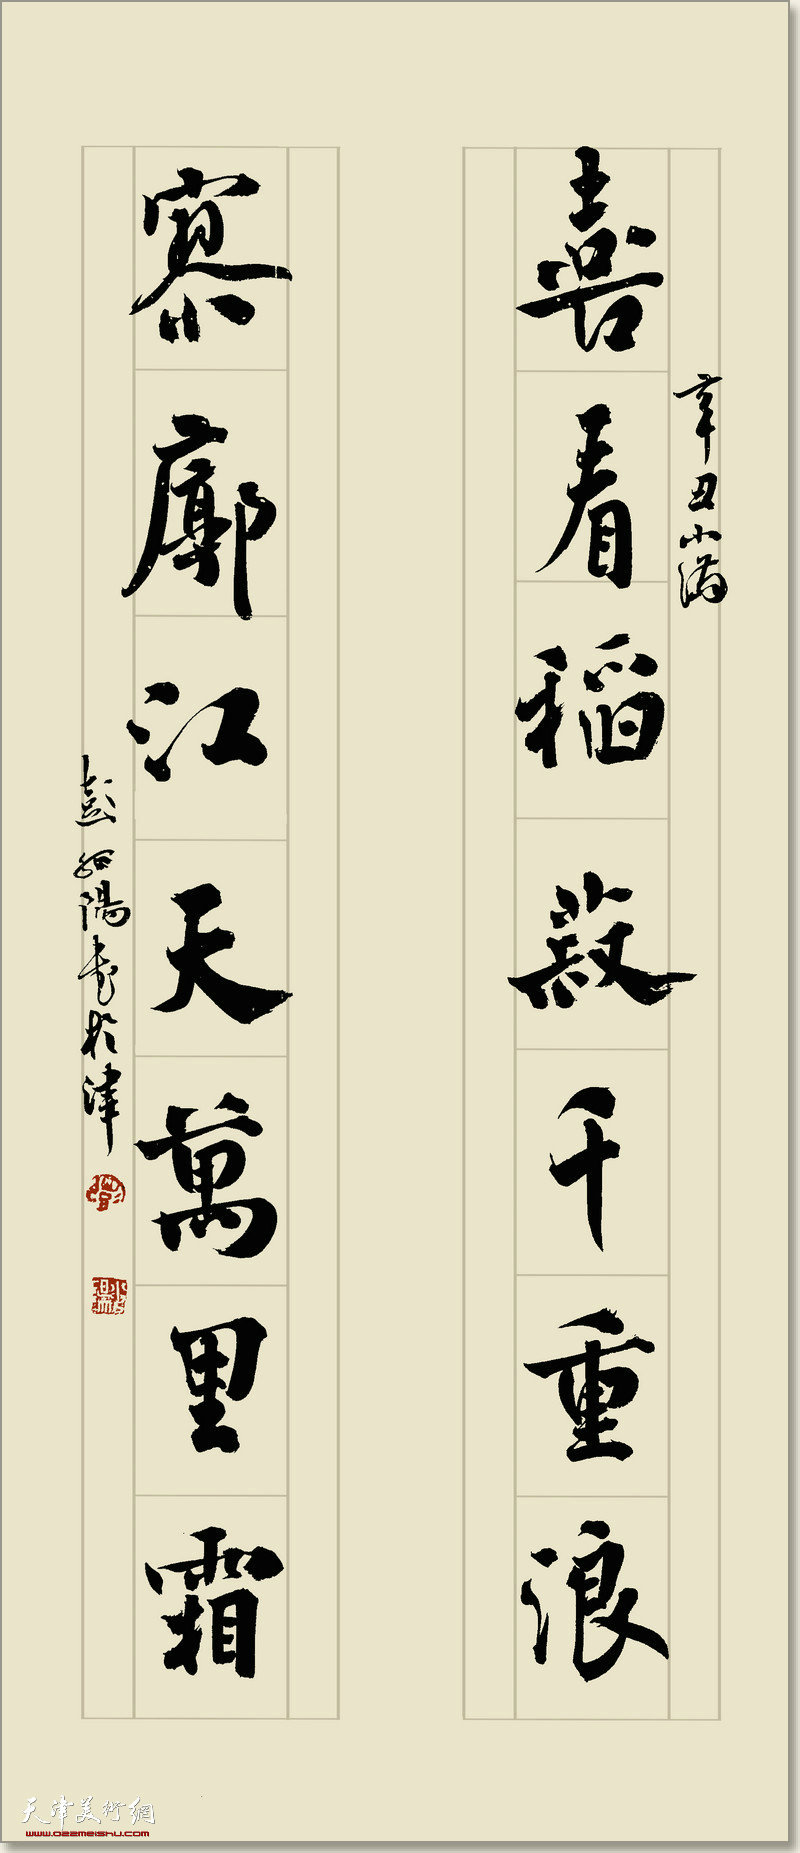 辛丑小满
喜看稻菽千重浪
寥廓江天萬里霜
彭陽書於津
天津美術網
www.022meishu.com